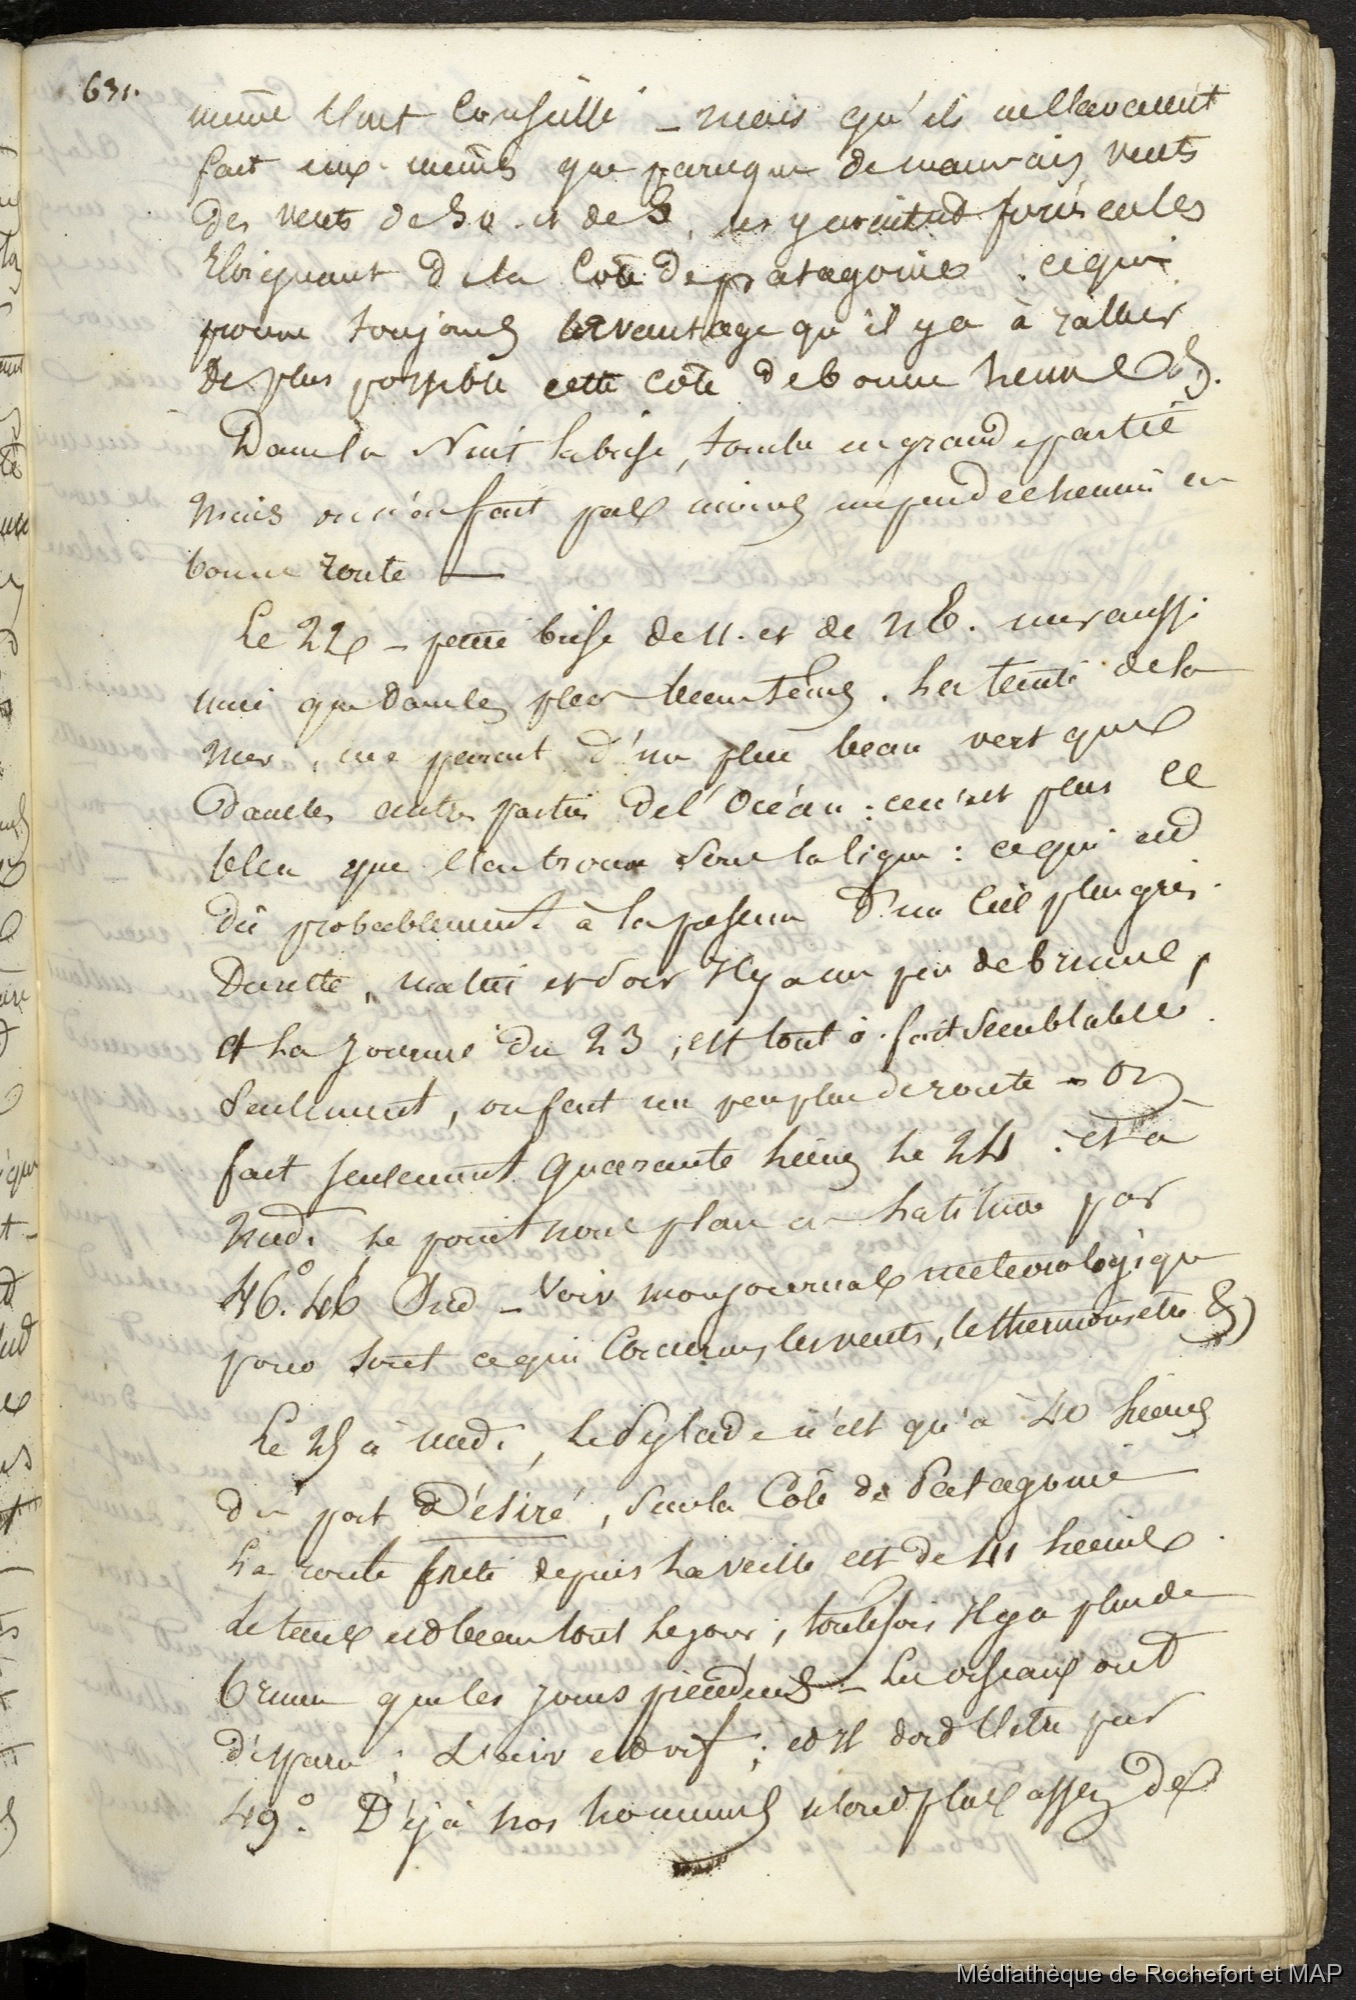 631.
même l'ont conseillé _ mais qu'ils ne l'avaient
fait eux-mêmes que parceque de mauvais vents
des vents de SO. et de S, les y avaient forcés en les
Eloignant de la Côte de patagonie : ce qui
prouve toujours l'avantage qu'il y a à rallier
de plus possible cette côte de bonne heure
Dans la Nuit la brise, tombe en grande partie
mais on n'en fait pas moins un peu de chemin en
bonne route —
Le 22 _ petite brise de N. et de NE. mer aussi
unie que dans les plus beaux tems. La teinte de la
mer, me parait d'un plus beau vert que
dans les autres parties de l'Océan : ce n'est plus ce
bleu que l'on trouve sous la ligne : ce qui est
dû probablement à la présence d'un Ciel plus gris.
Du reste, matin et soir Il y a un peu de brume,
et La journée du 23, est tout à fait semblable.
Seulement, on fait un peu plus de route - On
fait seulement quarante lieues le 24 : et à
midi le point nous place en Latitude par
46°. 46' Sud _ Voir mon journal météorologique
pour tout ce qui Concerne les vents, le thermomètre &)
Le 25 à midi, Le Pylade n'est qu'à 40 lieues
du port Désiré, sur la Côte de Patagonie
La route faite depuis La veille est de 41 lieues.
Le tems est beau tout Le jour ; toutefois Il y a plus de
brume que les jours précédens - Les oiseaux ont
disparu ; L'air est vif ; et Il doit l'être par
49°. Déjà nos hommes n'ont plus assez de
Médiathèque de Rochefort et MAP